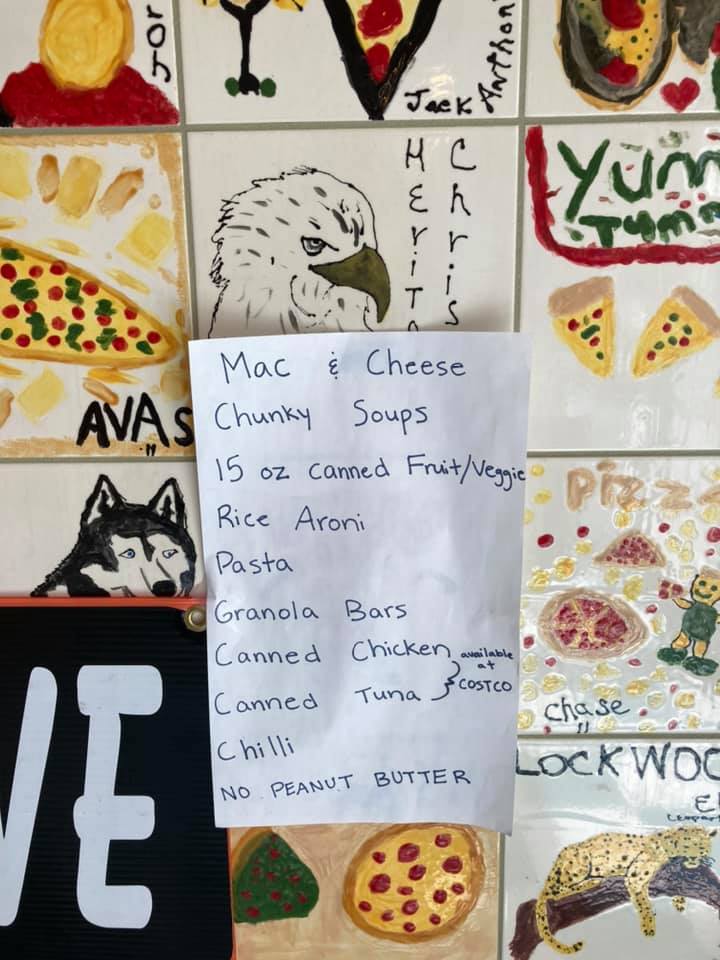 JOr
Jack
Anthon
Chris
Merito
Yum
Tumm
AVAs
"
Mac & Cheese
Chunky Soups
15 oz canned Fruit/Veggie
Rice Aroni
Pasta
Granola Bars
Canned Chicken
Canned Tuna
available
at
COSTCO
Chilli
NO PEANUT BUTTER
Pizza
chase
"
LOCKWOO
El
VE